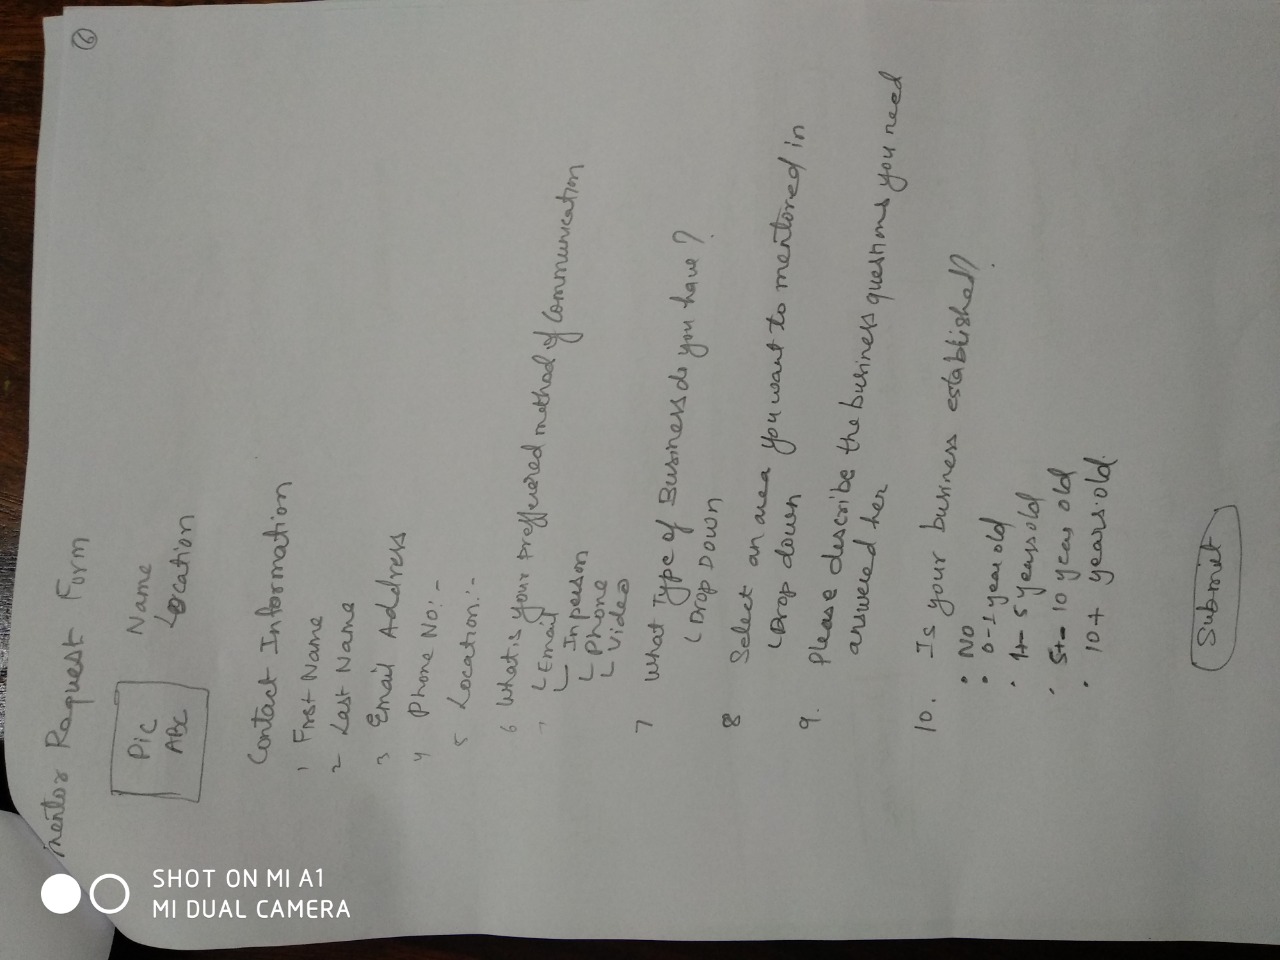 Mentor Request Form
6
Pic
ABC
Name
Location
Contact Information
1 First Name
2 Last Name
3 Email Address
4 Phone No:-
5 Location:-
6 What is your preffuered method of Communication
└ Email
└ In person
└ Phone
└ Video
7 What Type of Business do you have?
└ Drop Down
8 Select an area you want to mentored in
└ Drop down
9. Please describe the business questions you need
answered her
10. Is your business established?
• NO
• 0-1 year old
• 1+- 5 years old
• 5+- 10 year old
• 10+ years old.
Submit
SHOT ON MI A1
MI DUAL CAMERA